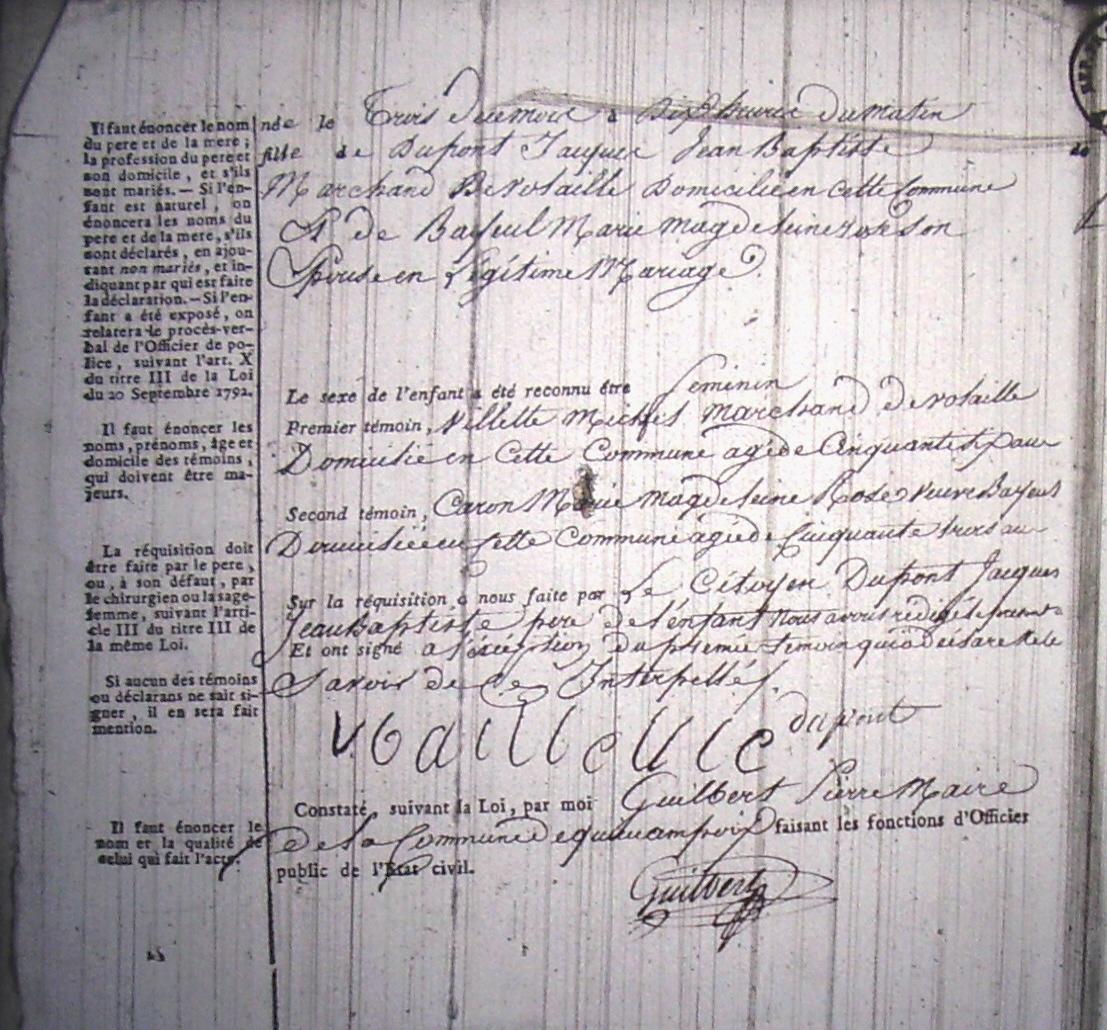 Il faut énoncer le nom
du pere et de la mere ;
la profession du pere et
son domicile, et s'ils
sont mariés. — Si l'en-
fant est naturel, on
énoncera les noms du
pere et de la mere, s'ils
sont déclarés, en ajou-
tant non mariés, et in-
diquant par qui est faite
la déclaration. — Si l'en-
fant a été exposé, on
relatera le procès-ver-
bal de l'Officier de po-
lice, suivant l'art. X
du titre III de la Loi
du 20 Septembre 1792.
Il faut énoncer les
noms, prénoms, âge et
domicile des témoins,
qui doivent être ma-
jeurs.
La réquisition doit
être faite par le pere,
ou, à son défaut, par
le chirurgien ou la sage-
femme, suivant l'arti-
cle III du titre III de
la même Loi.
Si aucun des témoins
ou déclarans ne sait si-
gner, il en sera fait
mention.
Il faut énoncer le
nom et la qualité de
celui qui fait l'acte.
née le Trois de ce mois à Dix heures du matin
fille de Dupont Jacques Jean Baptiste
Marchand De volaille Domicilié en cette Commune
de Bayeul Marie magdeleine son
Epouse en Légitime Mariage.
Le sexe de l'enfant a été reconnu être feminin
Premier témoin, Villette Michel marchand de volaille
Domicilié en Cette Commune agé de Cinquante six ans
Second témoin, Caron Marie magdeleine Rose veuve Bayeul
Domiciliée en Cette Commune agée de Cinquante trois ans
Sur la réquisition à nous faite par Le Citoyen Dupont Jacques
Jean Baptiste pere de l'enfant nous avons rédigé le present
Et ont signé a l'exception du premié temoin qui a declaré ne le
Savoir de ce Interpellé.
dupont
Constaté, suivant la Loi, par moi Guilbert Pierre Maire
De la Commune de quincampoix faisant les fonctions d'Officier
public de l'Etat civil.
Guilbert